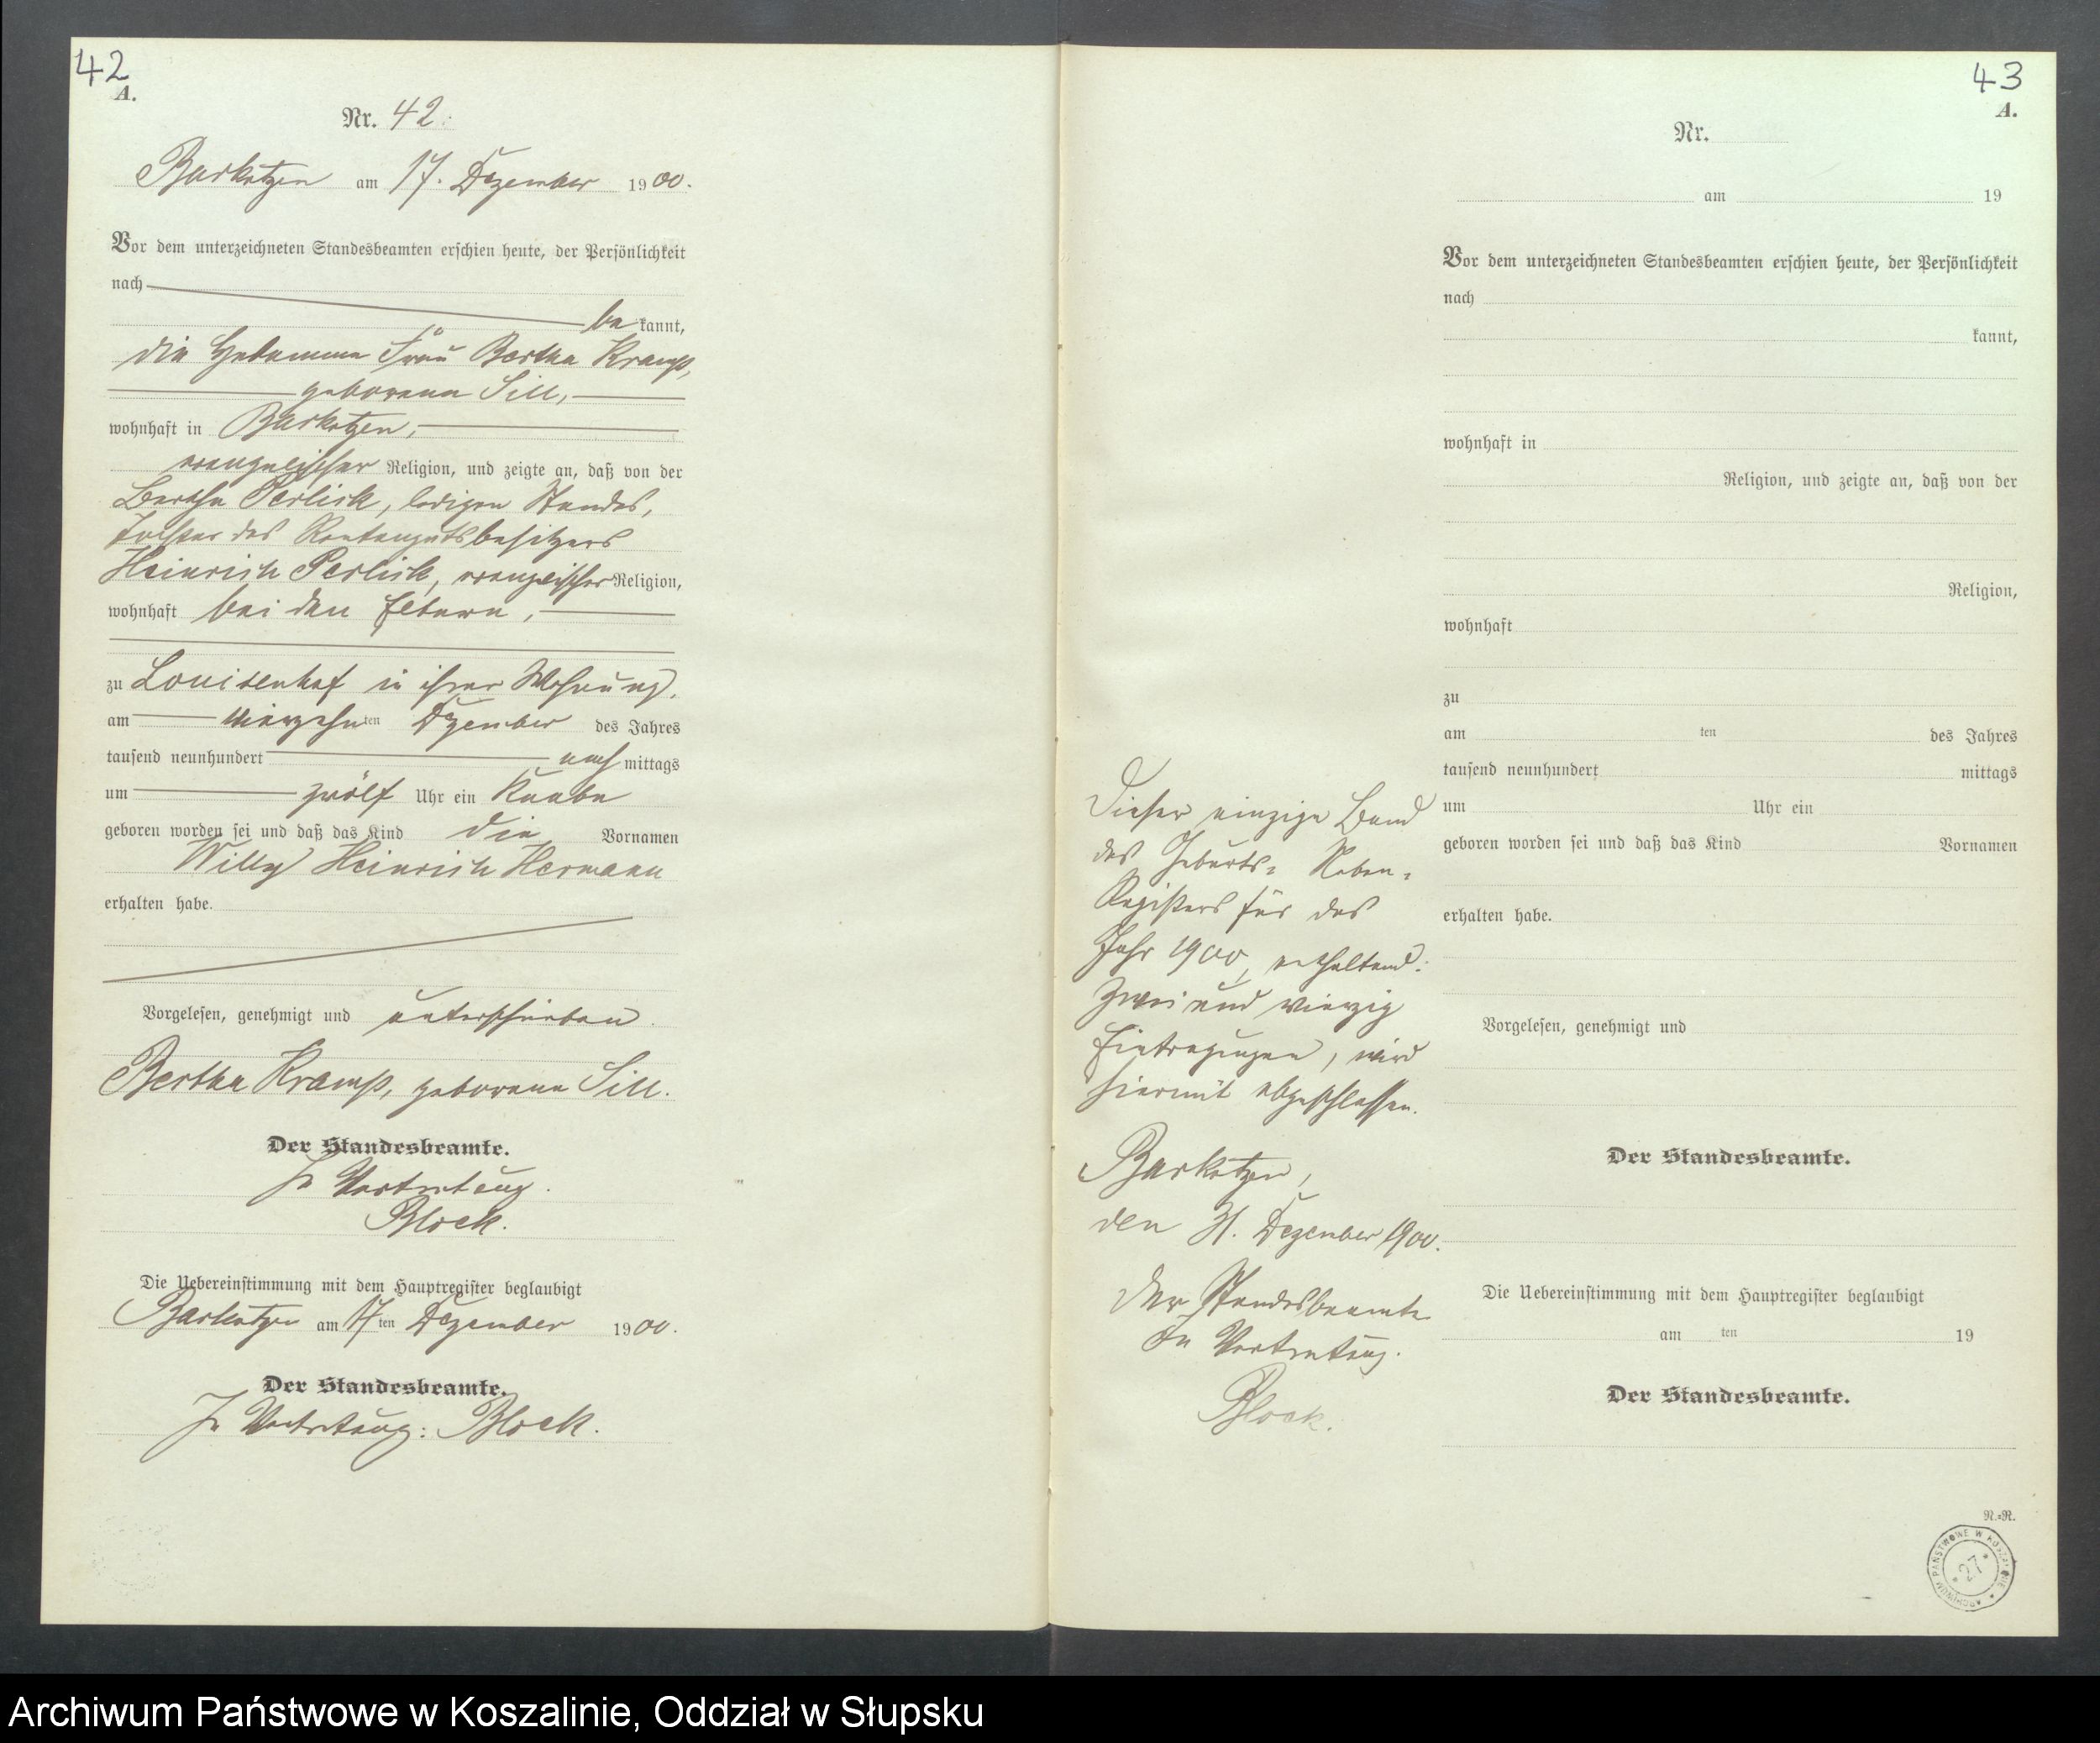 42
A.
Nr. 42.
Barkotzen am 17. Dezember 1900.
Vor dem unterzeichneten Standesbeamten erschien heute, der Persönlichkeit
nach
be kannt,
die Hebamme Frau Bertha Kramp,
geborene Sill,
wohnhaft in Barkotzen,
evangelischer Religion, und zeigte an, daß von der
Bertha Perlick, ledigen Standes,
Tochter des Rentengutsbesitzers
Heinrich Perlick, evangelischer Religion,
wohnhaft bei den Eltern,
zu Louisenhof in ihrer Wohnung,
am vierzehnten Dezember des Jahres
tausend neunhundert nachmittags
um zwölf Uhr ein Knabe
geboren worden sei und daß das Kind die Vornamen
Willy Heinrich Hermann
erhalten habe.
Vorgelesen, genehmigt und unterschrieben.
Bertha Kramp, geborene Sill.
Der Standesbeamte.
In Vertretung.
Block.
Die Uebereinstimmung mit dem Hauptregister beglaubigt
Barkotzen am 17ten Dezember 1900.
Der Standesbeamte.
In Vertretung: Block.
43
A.
Nr.
am 19
Vor dem unterzeichneten Standesbeamten erschien heute, der Persönlichkeit
nach
kannt,
wohnhaft in
Religion, und zeigte an, daß von der
Religion,
wohnhaft
zu
am ten des Jahres
tausend neunhundert mittags
um Uhr ein
geboren worden sei und daß das Kind Vornamen
erhalten habe.
Vorgelesen, genehmigt und
Der Standesbeamte.
Die Uebereinstimmung mit dem Hauptregister beglaubigt
am ten 19
Der Standesbeamte.
Dieser einzige Band
des Geburts- Neben-
Registers für das
Jahr 1900, enthaltend:
Zwei und vierzig
Eintragungen, wird
hiermit abgeschlossen.
Barkotzen,
den 31. Dezember 1900.
Der Standesbeamte
In Vertretung.
Block.
N.=R.
ARCHIWUM PAŃSTWOWE W KOSZALINIE
* 27 *
Archiwum Państwowe w Koszalinie, Oddział w Słupsku